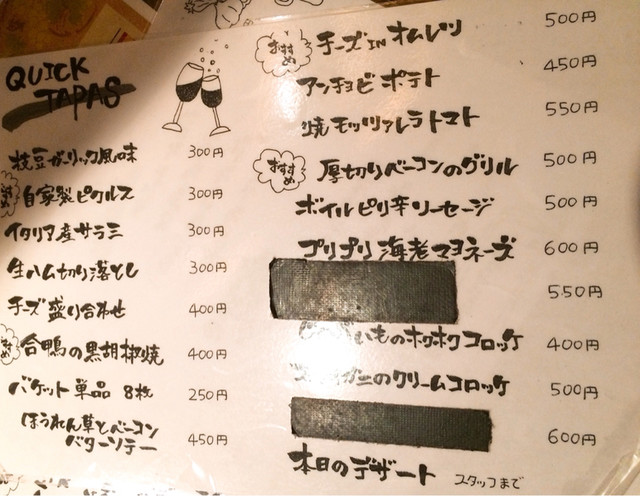 QUICK
TAPAS
枝豆ガーリック風味 300円
おすすめ 自家製ピクルス 300円
イタリア産サラミ 300円
生ハム切り落とし 300円
チーズ盛り合わせ 400円
おすすめ 合鴨の黒胡椒焼 400円
バケット単品 8枚 250円
ほうれん草とベーコン
バターソテー 450円
おすすめ チーズINオムレツ 500円
アンチョビポテト 450円
焼モッツァレラトマト 550円
おすすめ 厚切りベーコンのグリル 500円
ボイルピリ辛ソーセージ 500円
プリプリ海老マヨネーズ 600円
550円
いものホクホクコロッケ 400円
ガニのクリームコロッケ 500円
600円
本日のデザート スタッフまで